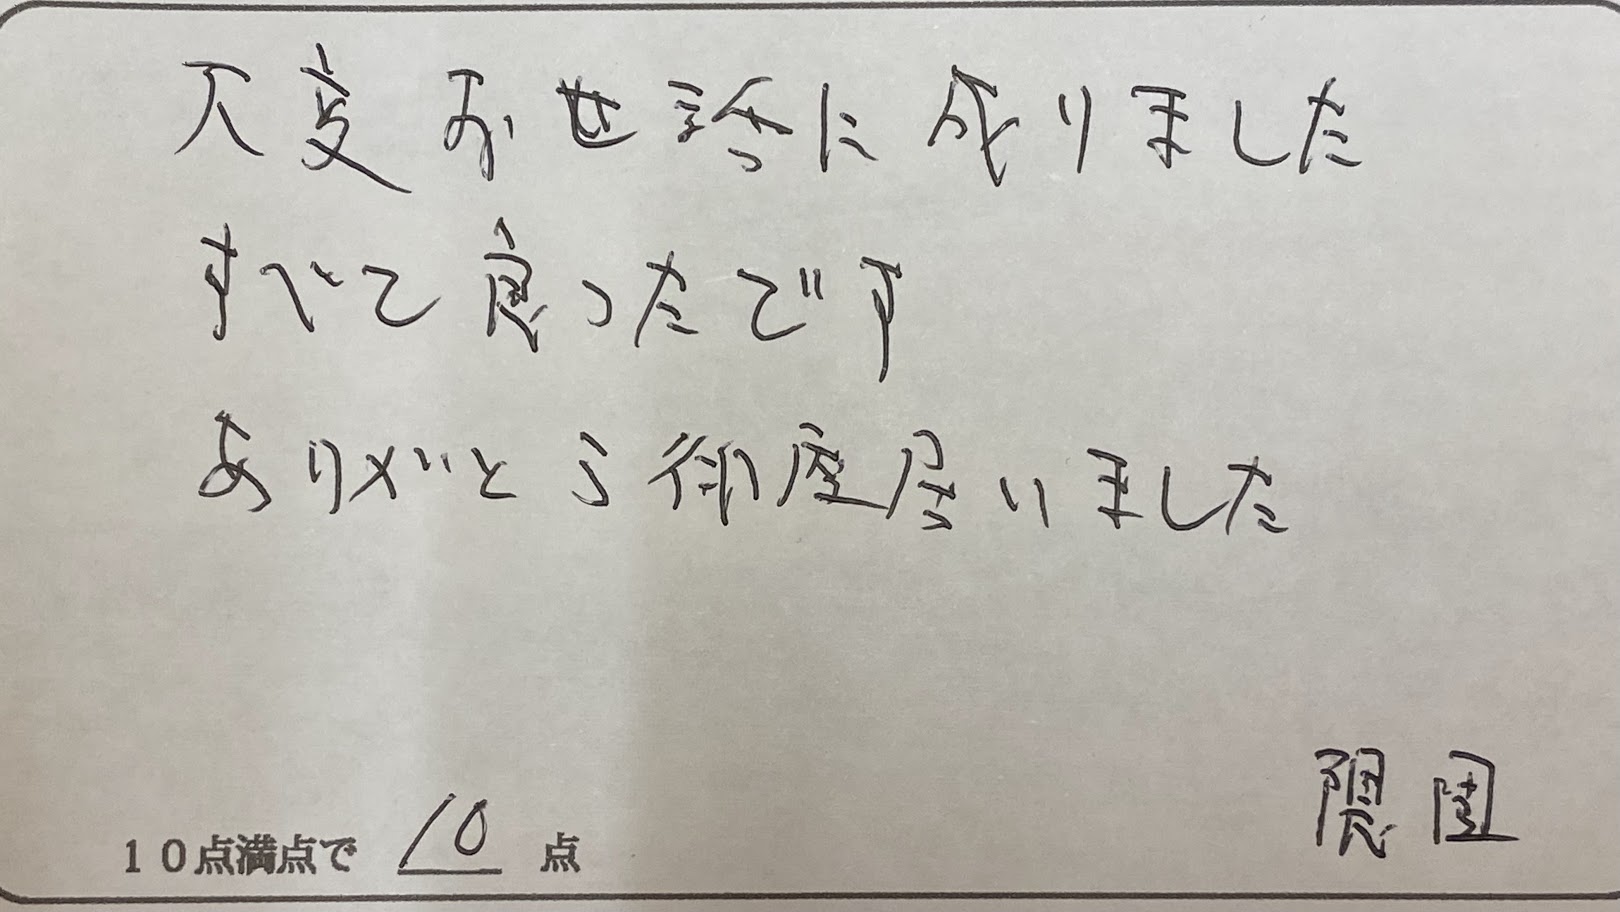 大変お世話に成りました
すべて良ったです
ありがとう御座居いました
10点満点で 10 点